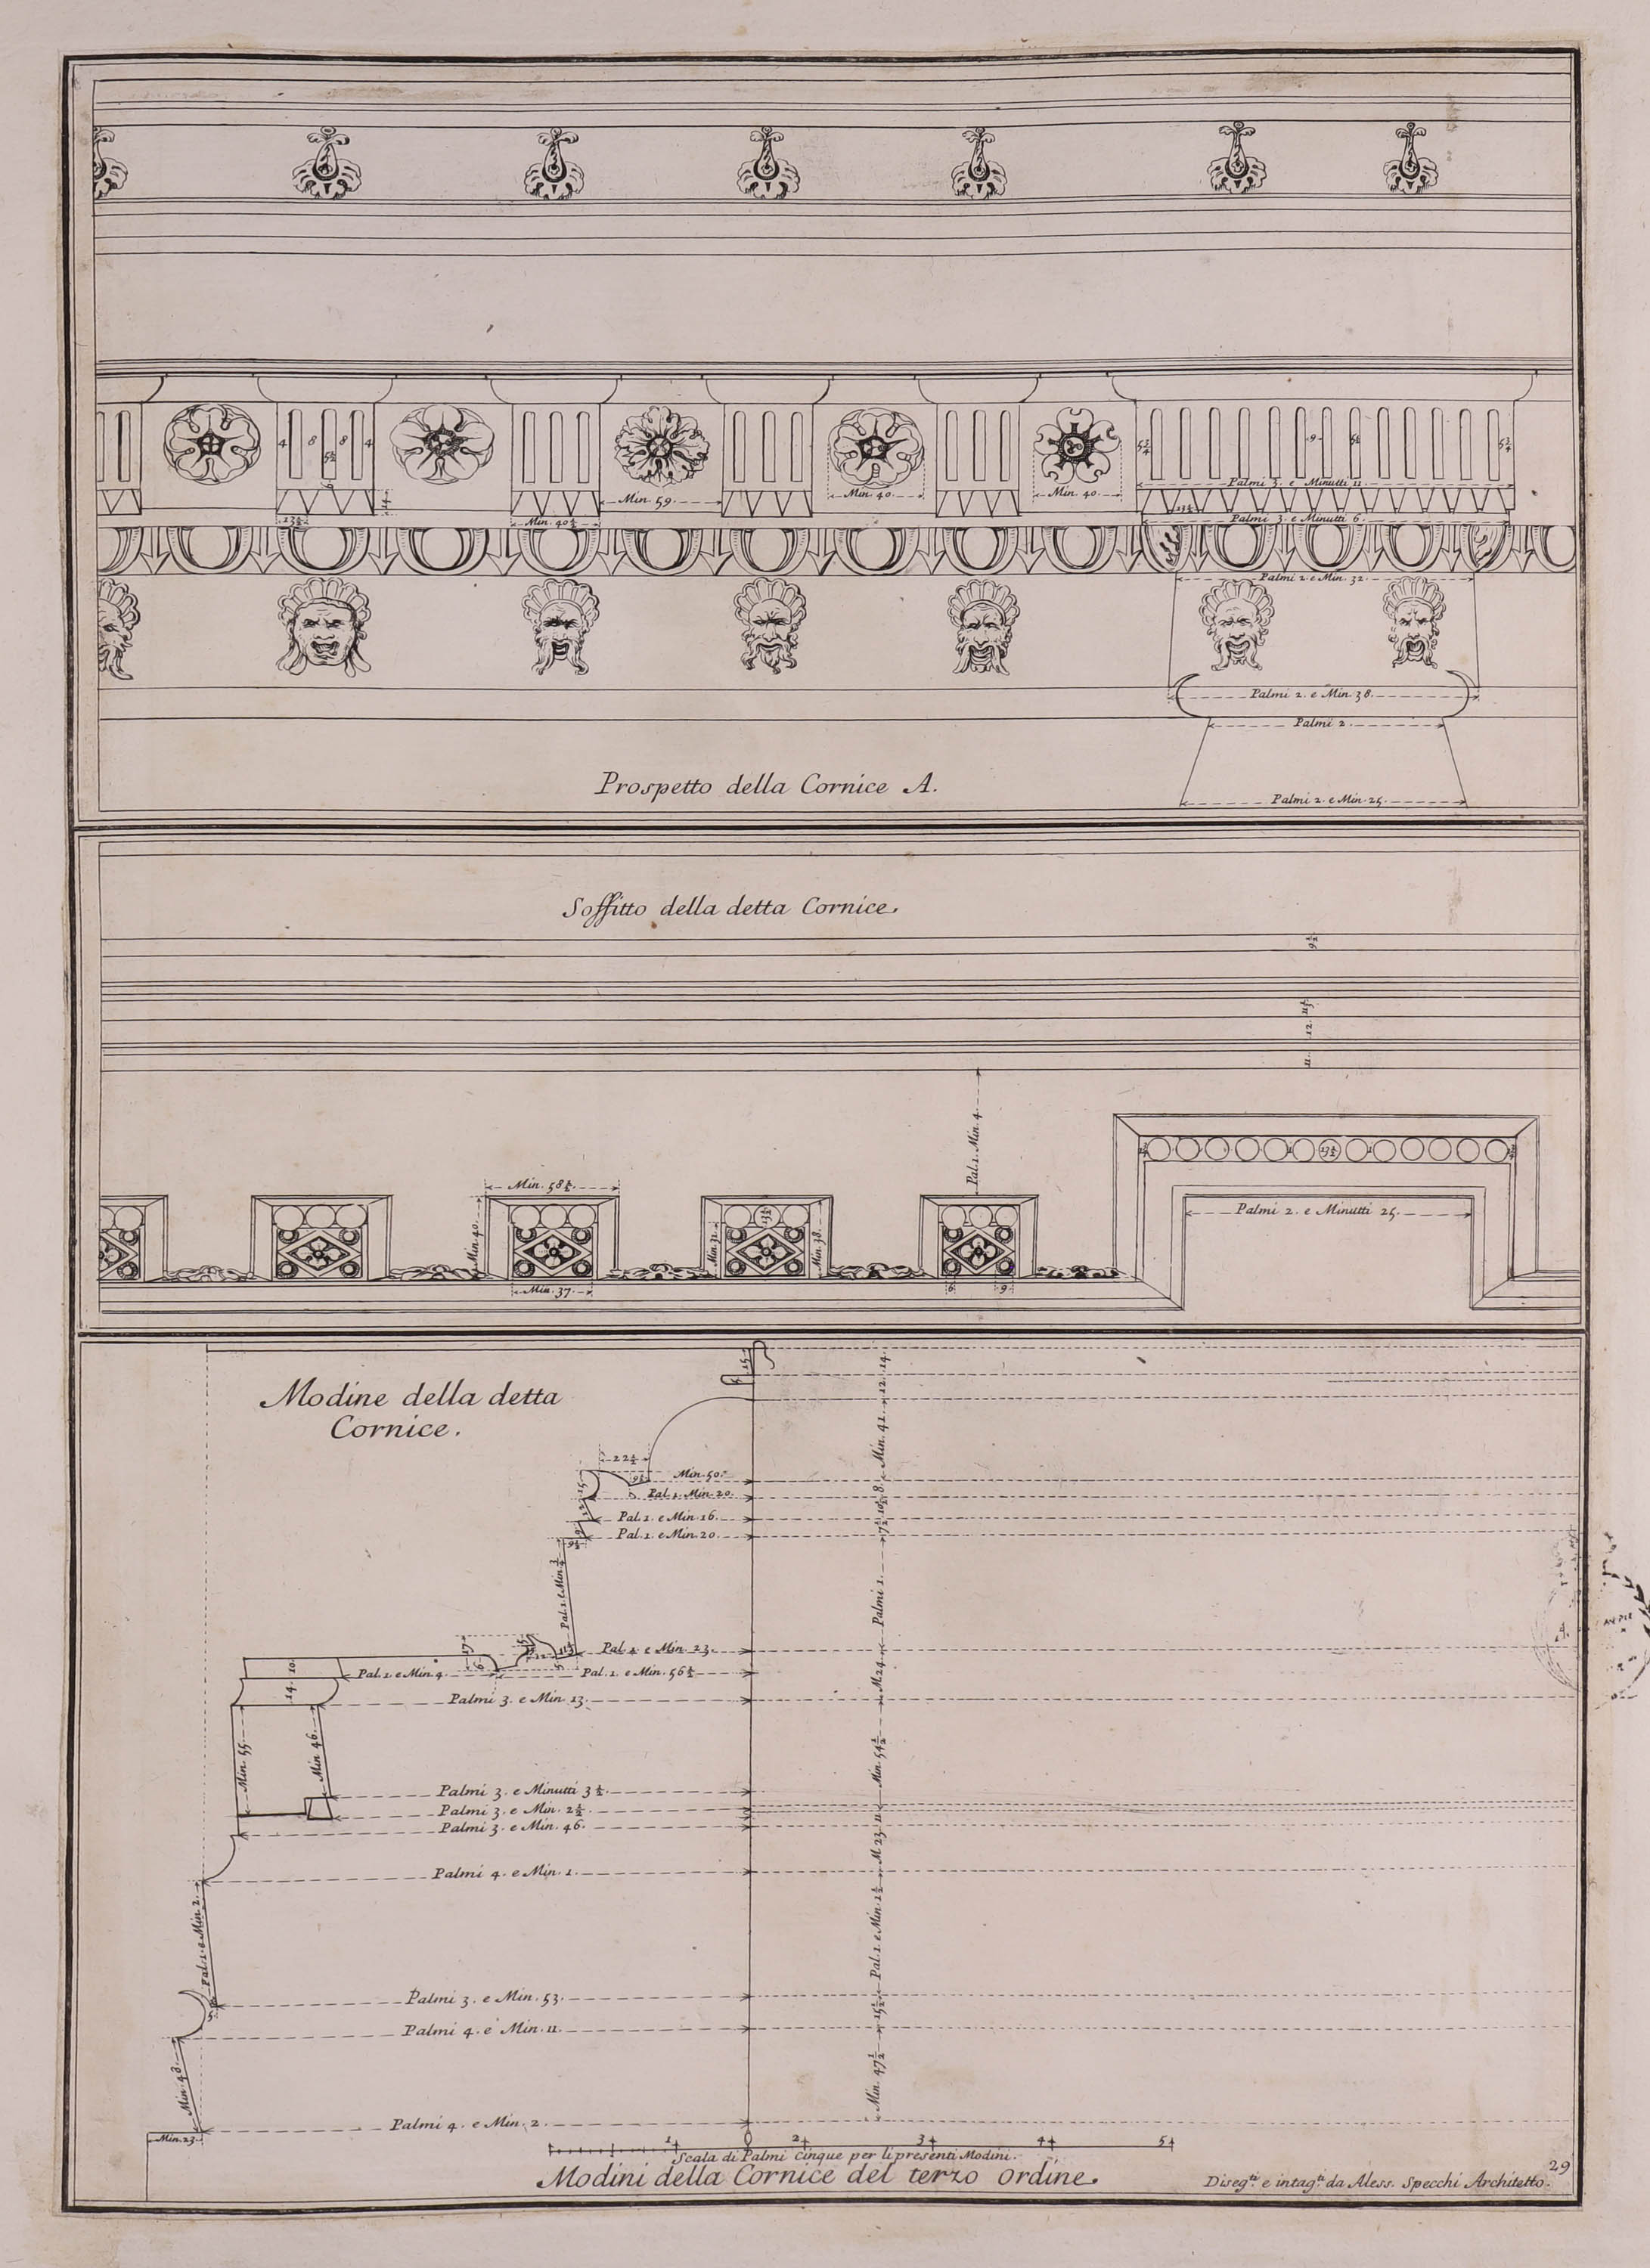 4 8 5½ 8 4
13½
Min. 40½
Min. 59.
Min. 40.
Min. 40.
5¾ 9 5½ 5¾
Palmi 3. e Minutti 11
13½
Palmi 3. e Minutti 6.
Palmi 2. e Min. 32.
Palmi 2. e Min. 38.
Palmi 2.
Palmi 2. e Min. 25.
Prospetto della Cornice A.
Soffitto della detta Cornice.
9½
12.
11
Pal. 1. Min. 4.
13½
Palmi 2. e Minutti 25.
Min. 58½.
Min. 40.
Min. 37.
Min. 31.
13½
Min. 38.
6 9
Modine della detta
Cornice.
15
14.
12.
Min. 41.
22½
9½
Min. 50.
Pal. 1. Min. 20.
Pal. 1. e Min. 16.
Pal. 1. e Min. 20.
15
12
9½
8.
10½
7½
Palmi 1.
Pal. 1. e Min. 23.
Pal. 1. e Min. 4.
Pal. 1. e Min. 56½
17
6
12
5
10.
14.
M 24
Palmi 3. e Min. 13.
Min. 55.
Min. 46.
Min. 54½
Palmi 3. e Minutti 3½.
Palmi 3. e Min. 2½.
Palmi 3. e Min. 46.
11
M 23
Palmi 4. e Min. 1.
Pal. 1. e Min. 2.
Pal. 1. e Min. 1½
Palmi 3. e Min. 53.
5
15½
Palmi 4. e Min. 11.
Min. 48.
Min. 47½
Palmi 4. e Min. 2.
Min. 23.
1 0 2 3 4 5
Scala di Palmi cinque per li presenti Modini.
Modini della Cornice del terzo ordine.
Diseg.to e intag.to da Aless. Specchi Architetto.
29